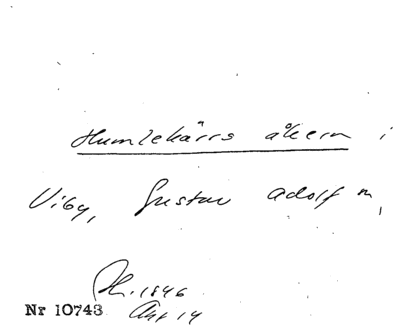 Humlekärrs åkern i
Viby, Gustav Adolf m,
H. 1846
Akt 14
Nr 10743